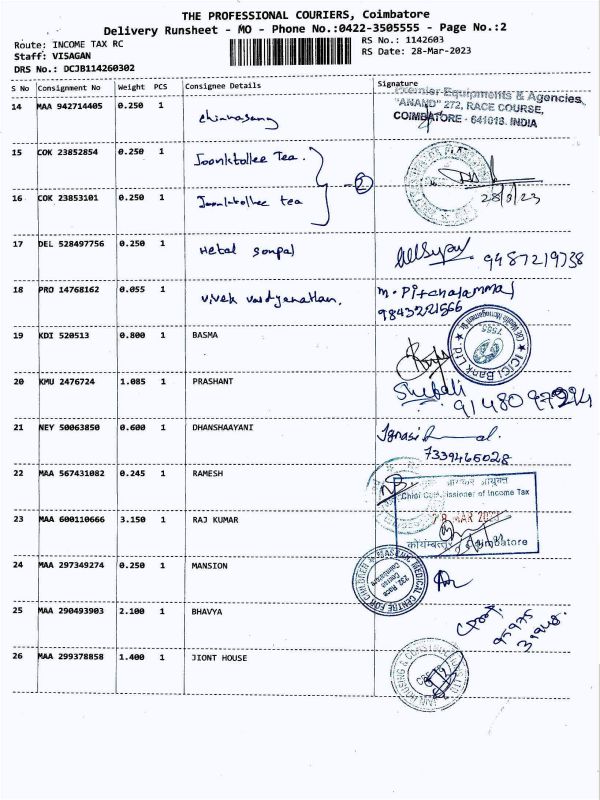 THE PROFESSIONAL COURIERS, Coimbatore
Delivery Runsheet - MO - Phone No.:0422-3505555 - Page No.:2
Route: INCOME TAX RC
RS No.: 1142603
Staff: VISAGAN
RS Date: 28-Mar-2023
DRS No.: DCJB114260302
S No Consignment No Weight PCS Consignee Details Signature
Premier Equipments & Agencies
"ANAND" 272, RACE COURSE,
COIMBATORE - 641018. INDIA
14 MAA 942714405 0.250 1
15 COK 23852854 0.250 1 Joonktollee Tea.
2
16 COK 23853101 0.250 1 Joonktollee tea
28/3/23
17 DEL 528497756 0.250 1 Hetal sonpal
9487219738
18 PRO 14768162 0.055 1 Vivek vaidyanathan.
M. Pitchaiammal
19 KDI 520513 0.800 1 BASMA
ICICI Bank Ltd
20 KMU 2476724 1.085 1 PRASHANT
21 NEY 50063850 0.600 1 DHANSHAAYANI
7339466028
22 MAA 567431082 0.245 1 RAMESH
आयकर आयुक्त
Chief Commissioner of Income Tax
23 MAA 600110666 3.150 1 RAJ KUMAR
MAR 2023
कोयम्बत्तूर Coimbatore
24 MAA 297349274 0.250 1 MANSION
MASONIC MEDICAL CENTRE FOR CHILDREN
232 Race Course Coimbatore
25 MAA 290493903 2.100 1 BHAVYA
95975
26 MAA 299378858 1.400 1 JIONT HOUSE